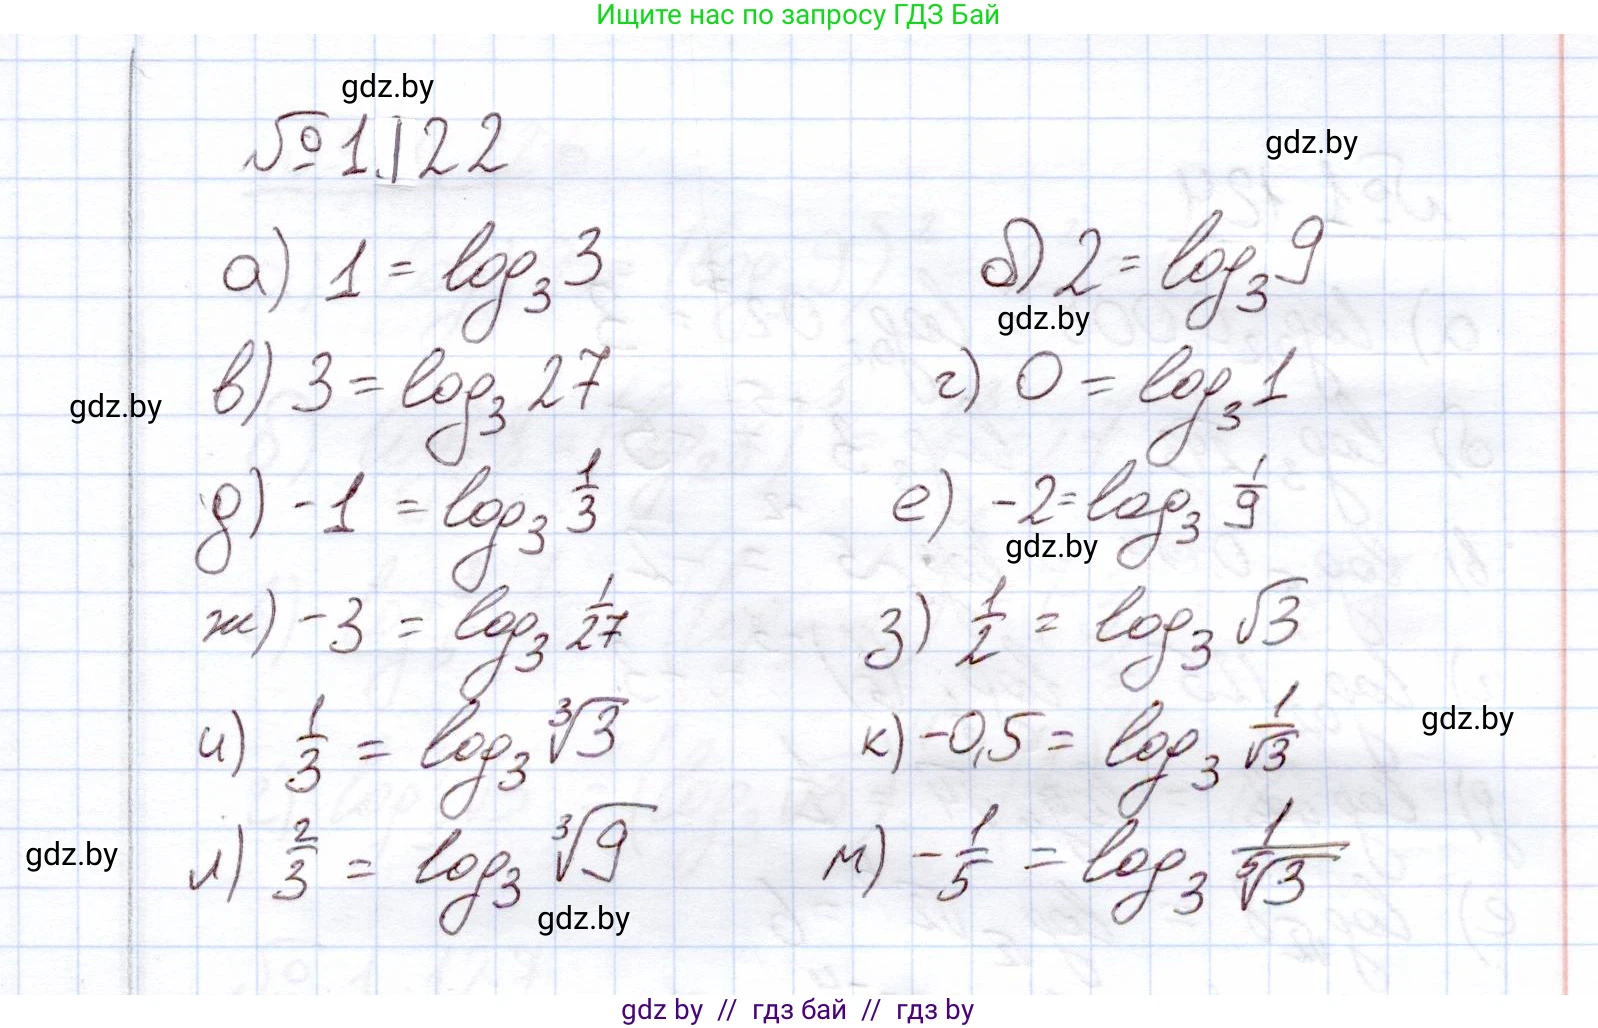 Ищите нас по запросу ГДЗ Бай
gdz.by
№ 1.122
gdz.by
а) 1 = log₃ 3
б) 2 = log₃ 9
gdz.by
в) 3 = log₃ 27
г) 0 = log₃ 1
gdz.by
д) -1 = log₃ 1/3
е) -2 = log₃ 1/9
gdz.by
ж) -3 = log₃ 1/27
з) 1/2 = log₃ √3
и) 1/3 = log₃ ∛3
к) -0,5 = log₃ 1/√3
gdz.by
л) 2/3 = log₃ ∛9
м) -1/5 = log₃ 1/⁵√3
gdz.by
gdz.by
gdz by // гдз бай // gdz by